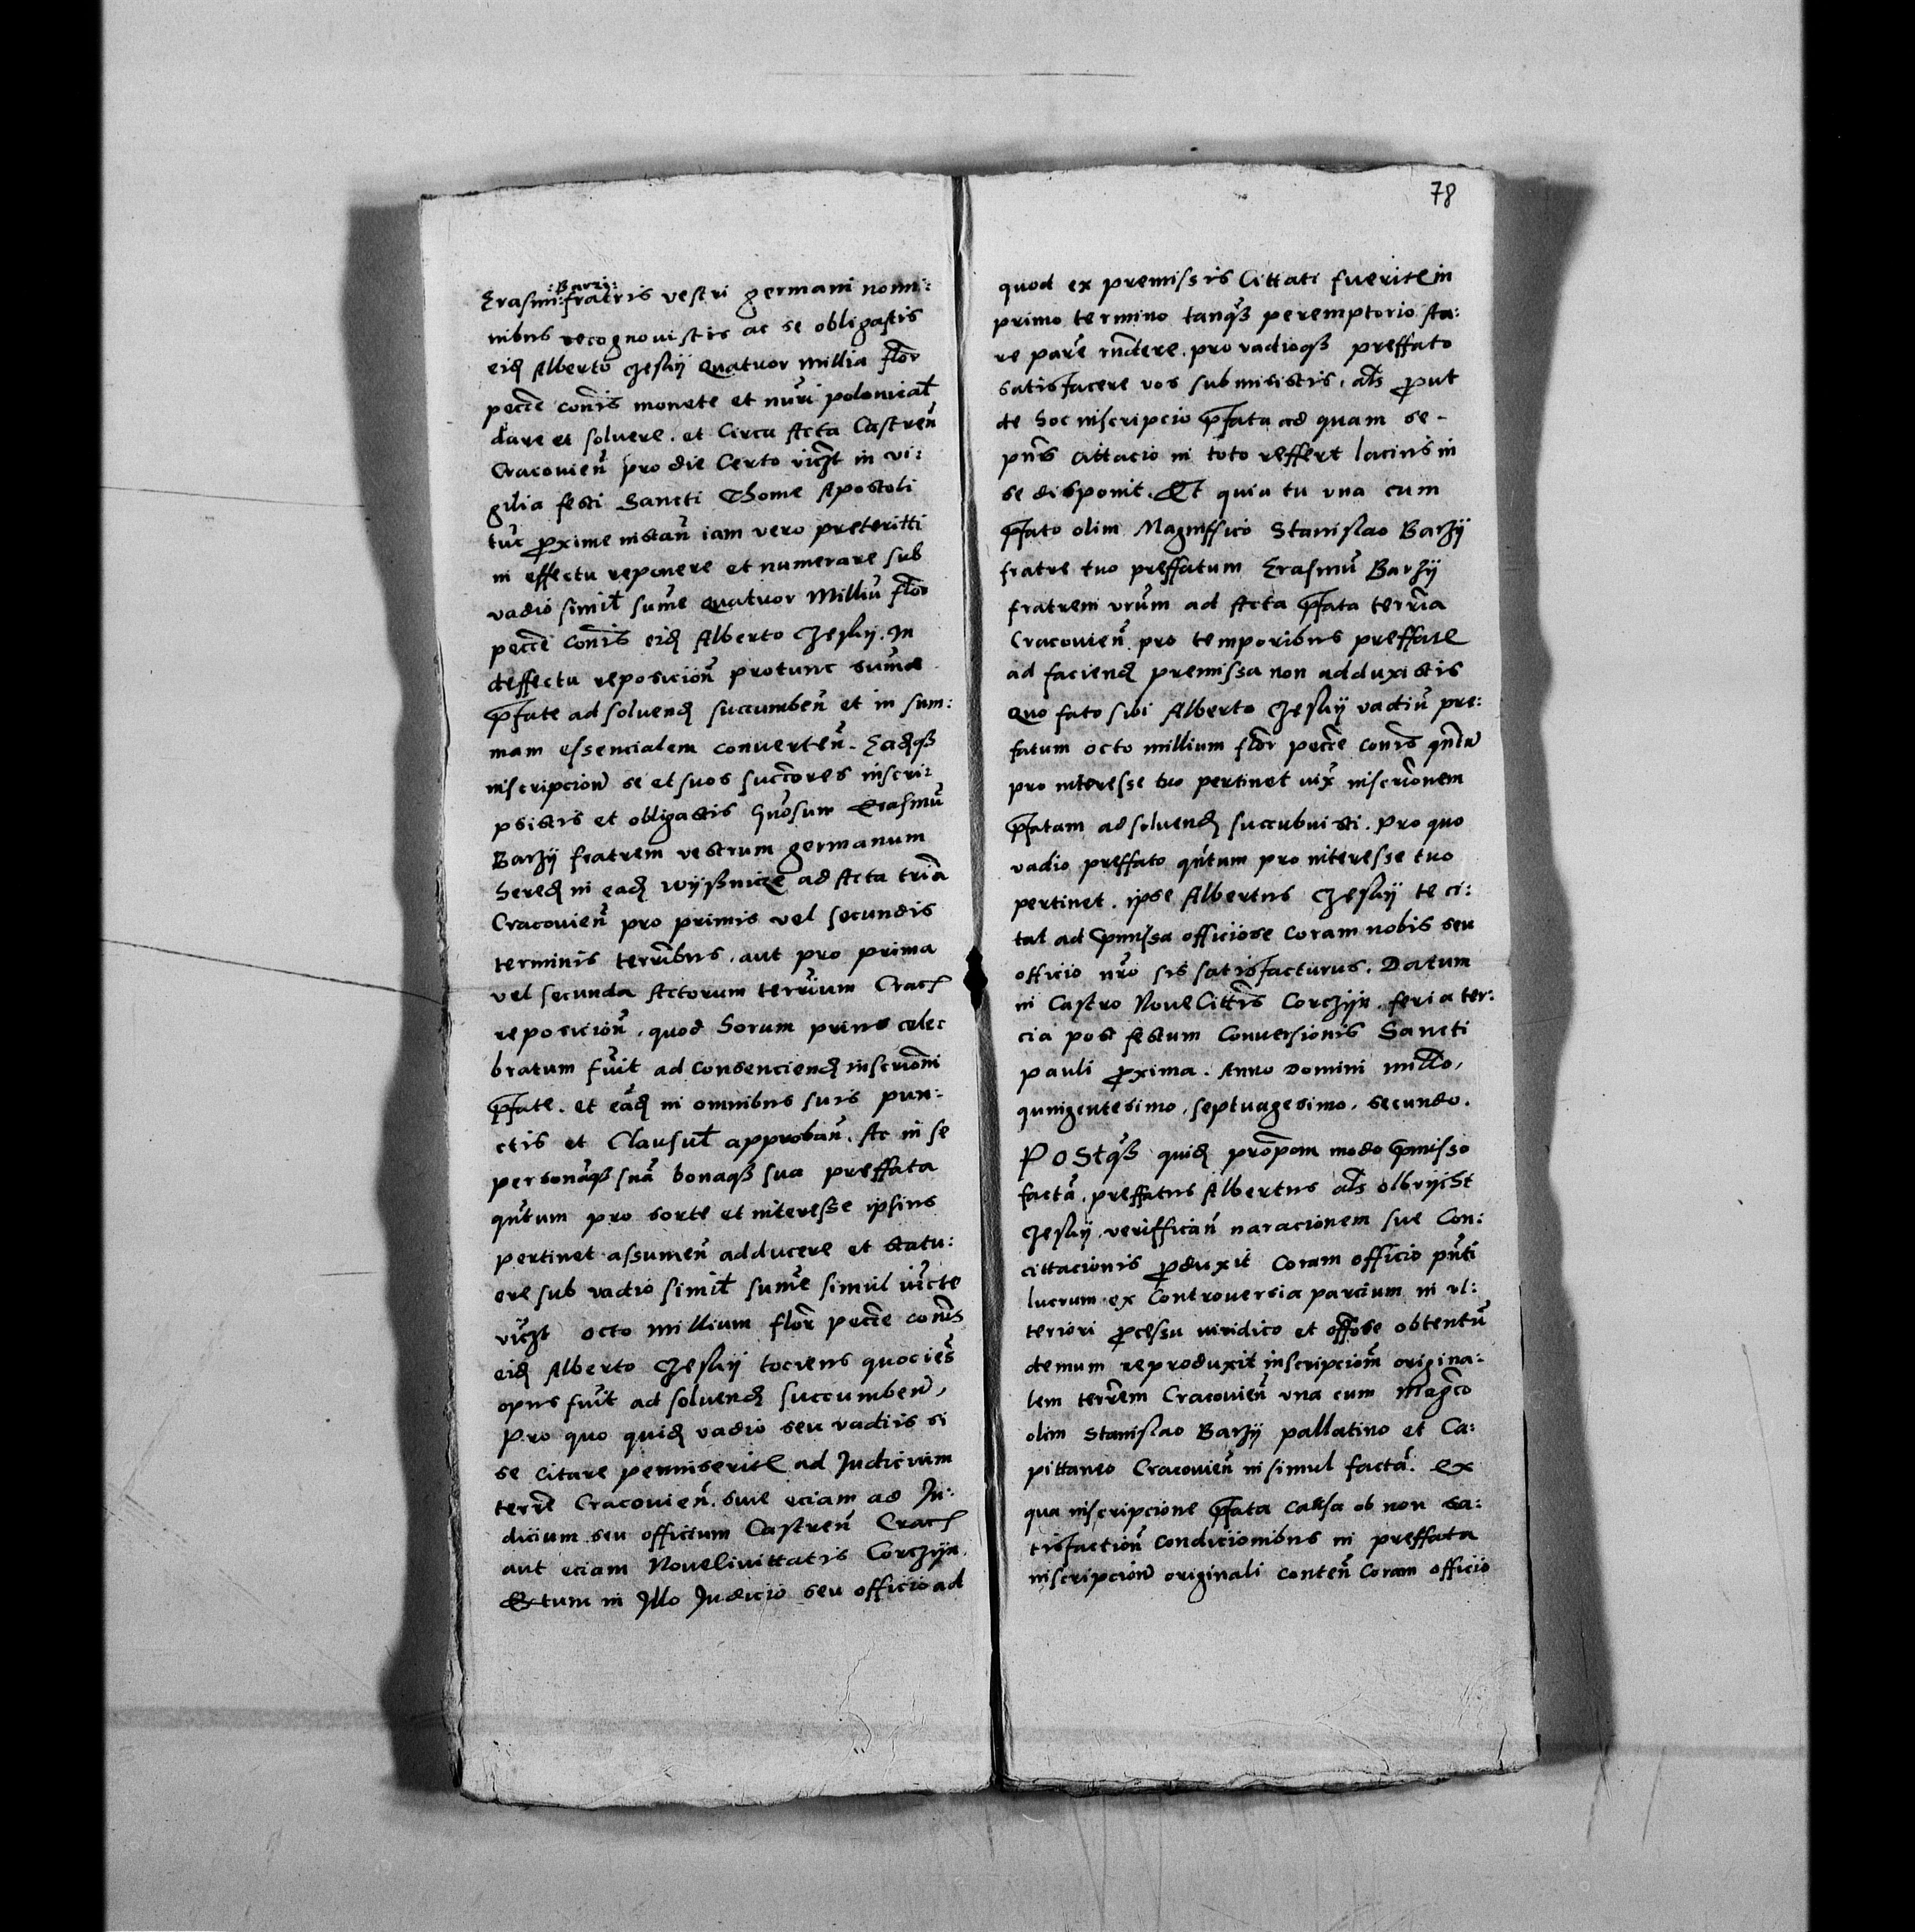 :Barzi:
Erasmi: fratris vestri germani nomi:
nibus recognovistis ac se obligastis
eid Alberto Czesky Quatuor Millia flor
pecce conis monete et nuri polonical
dare et soluere. et Circa Acta Castren
Cracouien pro die Certo viczt in vi:
gilia festi Sancti Thome Apostoli
tuc proxime instan iam vero preteritti
in effectu reponere et numerare sub
vadio simil sume Quatuor Milliu flor
pecce conis eid Alberto Czesky. In
deffectu reposicion protunc sume
pfate ad soluend succumben et in sum:
mam essencialem converten. Eadqz
inscripcion se et suos succores inscri:
psistis et obligastis Gnosum Erasmu
Barzy fratrem vestrum germanum
hered in ead Wysnicze ad Acta tria
Cracouien pro primis vel secundis
terminis terribus. aut pro prima
vel secunda Actorum terrium Crac
reposicion. quod horum prius cele
bratum fuit ad consenciend inscrioni
pfate. et ead in omnibus suis pun:
ctis et Clausul approban. Ac in se
personaqz sua bonaqz sua preffata
qntum pro sorte et interesse ipsius
pertinet assumen adducere et statu:
ere sub vadio simil sume simul iuncte
viczt octo millium flor pecce conis
eid Alberto Czesky tociens quocies
opus fuit ad soluend succumben,
Pro quo quid vadio seu vadiis si
se citare permiserit ad Judicium
terre Cracouien. sive eciam ad Ju:
dicium seu officium Castren Crac
aut eciam Novelivittatis Corczyn.
Et tum in Illo Judicio seu officio ad
78
quod ex premissis Cittati fuerit in
primo termino tanqz peremptorio sta:
re pare rndere. pro vadioqz preffato
satisfacere vos submisistis. als prout
de hoc inscripcio pfata ad quam se-
pns cittacio in toto reffert lacius in
se disponit. Et quia tu vna cum
pfato olim Magniffico Stanislao Barzy
fratre tuo preffatum Erasmu Barzy
fratrem vrum ad Acta pfata terria
Cracouien pro temporibus preffate
ad faciend premissa non adduxistis
Quo fato sibi Alberto Czesky vadiu pre:
fatum octo millium flor pecce conis qntu
pro interesse tuo pertinet iux inscrionem
pfatam ad soluend succubuisti. Pro quo
vadio preffato qntum pro interesse tuo
pertinet. ipse Albertus Czesky te ci:
tat ad pmissa officiose Coram nobis seu
officio nro sis satisfacturus. Datum
in Castro NoveCittis Corczyn. feria ter:
cia post festum Conversionis Sancti
Pauli proxima. Anno Domini millo,
quingentesimo, septuagesimo, secundo.
Postqz quid propom modo pmisso
facta. preffatus Albertus als Olbrycht
Czesky veriffican naracionem sue Con:
cittacionis produxit Coram officio pnti
lucrum ex Controversia parcium in vl:
teriori processu iuridico et offose obtentu
demum reproduxit inscripciom origina:
lem terrem Cracouien vna cum Magco
olim Stanislao Barzy pallatino et Ca:
pittaneo Cracouien in simul facta. Ex
qua inscripcione pfata causa ob non sa:
tisfaction condicionibus in preffata
inscripcion originali conten Coram officio